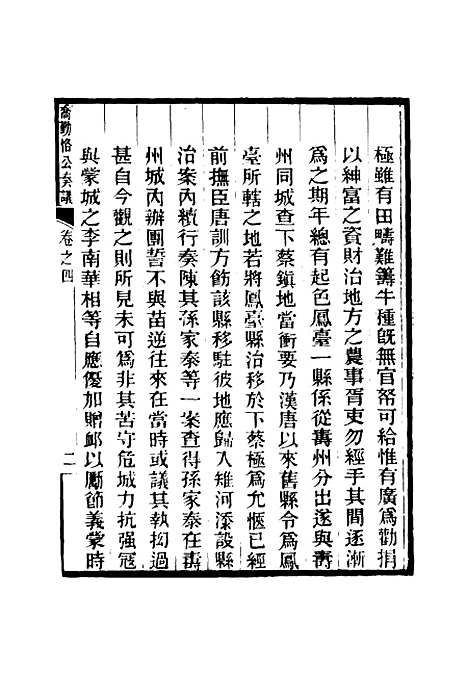 極雖有田疇難籌牛種旣無官帑可給惟有廣爲勸捐
以紳富之資財治地方之農事胥吏勿經手其間逐漸
爲之期年總有起色鳳臺一縣係從壽州分出遂與壽
州同城查下蔡鎭地當衝要乃漢唐以來舊縣今爲鳳
臺所轄之地若將鳳臺縣治移於下蔡極爲允愜已經
前撫臣唐訓方飭該縣移駐彼地應歸入雉河添設縣
治案內續行奏陳其孫家泰等一案查得孫家泰在壽
州城內辦團誓不與苗逆往來在當時或議其執拗過
甚自今觀之則所見未可爲非其苦守危城力抗强寇
與蒙城之李南華相等自應優加贈䘏以勵節義蒙時
喬勤恪公奏議
卷之四
二